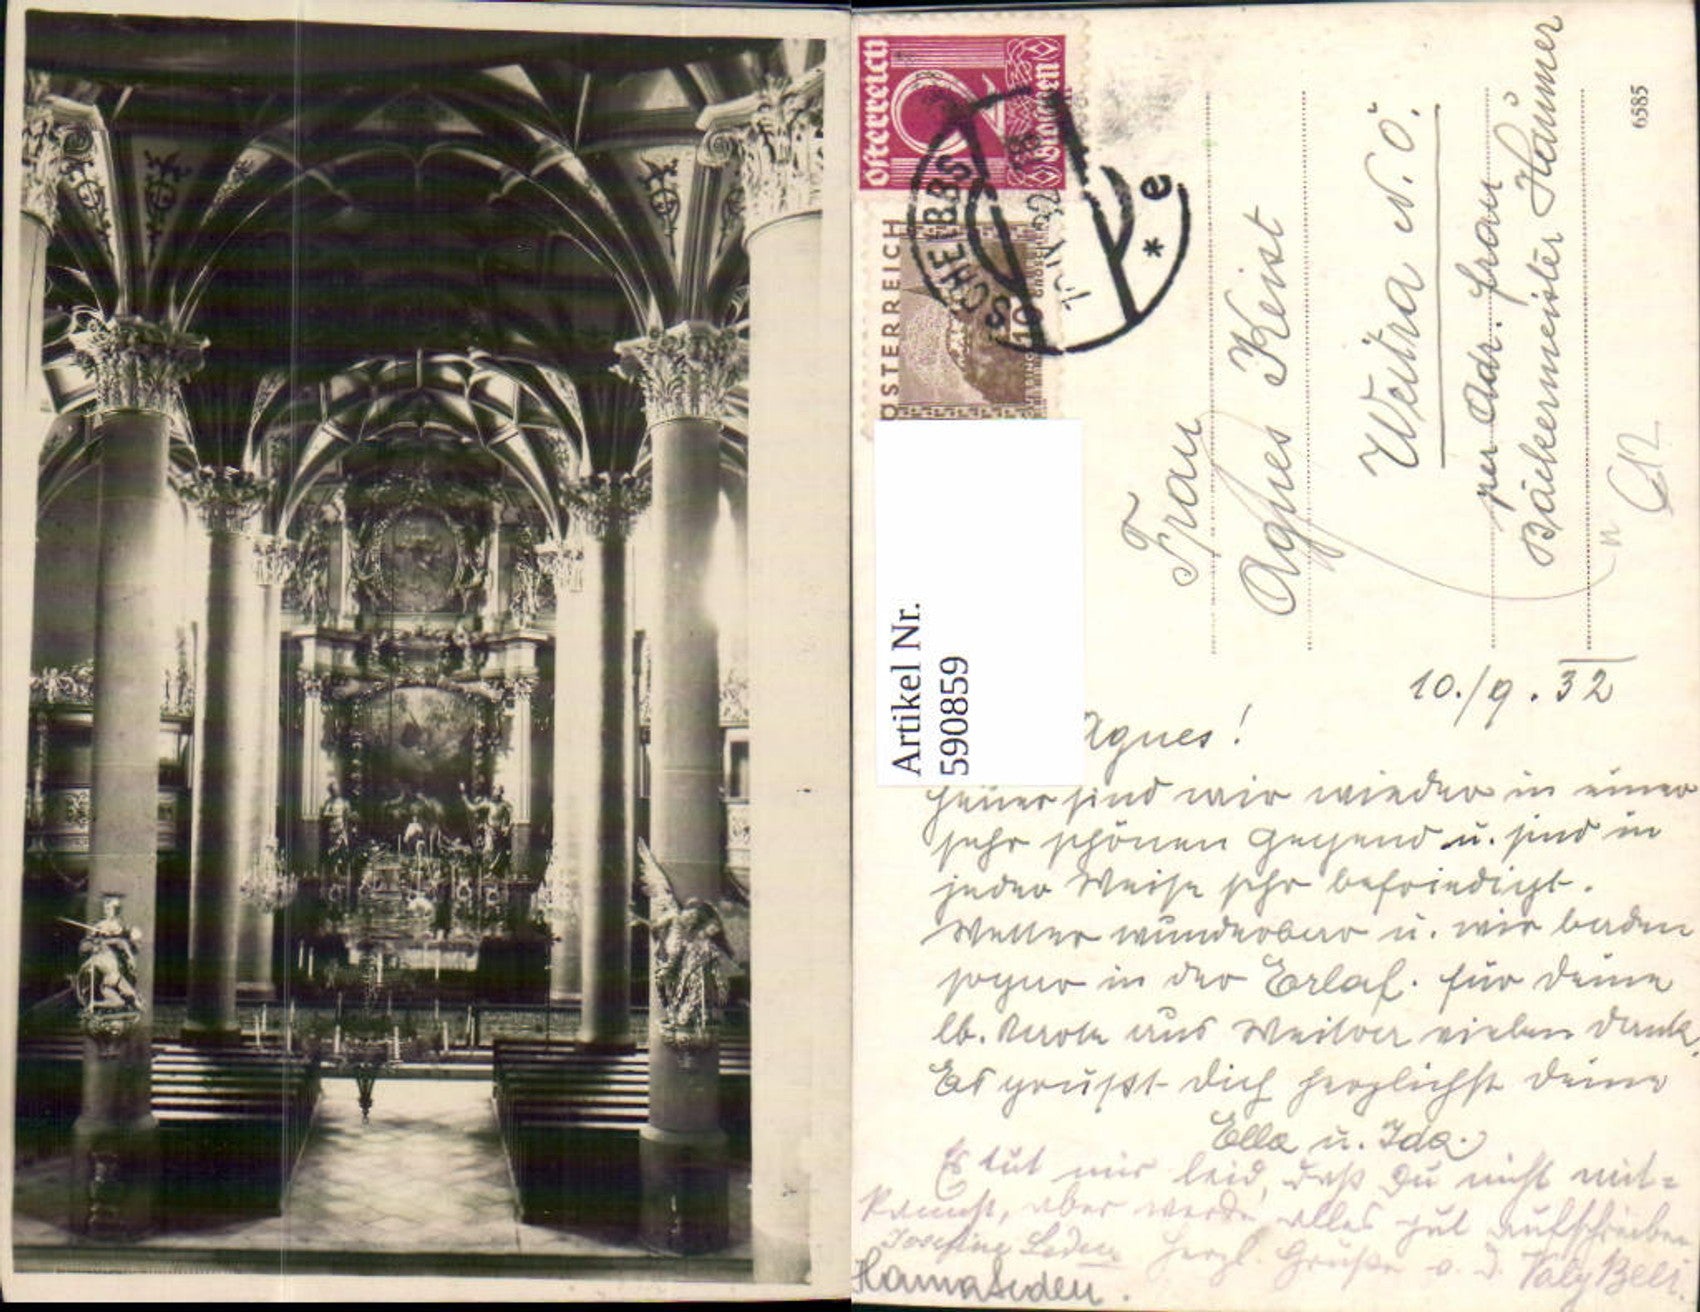 Österreich
2
Groschen
ÖSTERREICH
10
GROSCHEN
SCHEIBBS
10.IX.32
* e
Artikel Nr.
590859
6585
Frau
Agnes Keist
Weitra N.Ö.
per Adr. Frau
Bäckermeister Hammer
10./9.32
Agnes!
Heuer sind wir wieder in einer
sehr schönen Gegend u. sind in
jeder Weise sehr befriedigt.
Wetter wunderbar u. wir baden
sogar in der Erlaf. Für Deine
lb. Karte aus Weitra vielen Dank.
Es grüßt Dich herzlichst Deine
Ella u. Ida.
Es tut mir leid, daß Du nicht mit-
kannst, aber werde alles gut aufschreiben
Josefine Herzl. Grüße